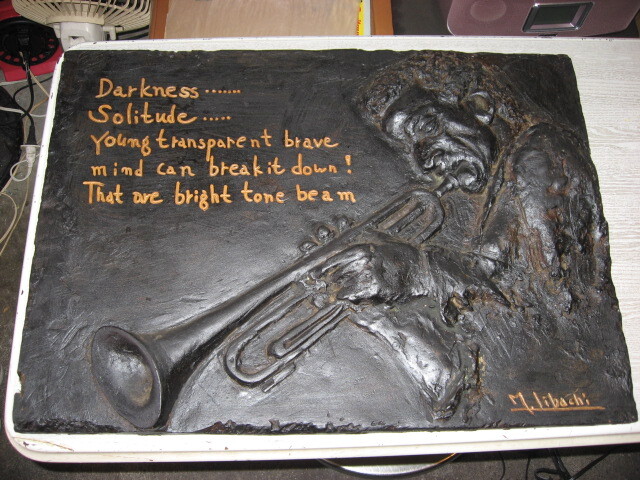 Darkness.......
Solitude.....
Young transparent brave
mind can break it down!
That are bright tone beam
M.Iibachi